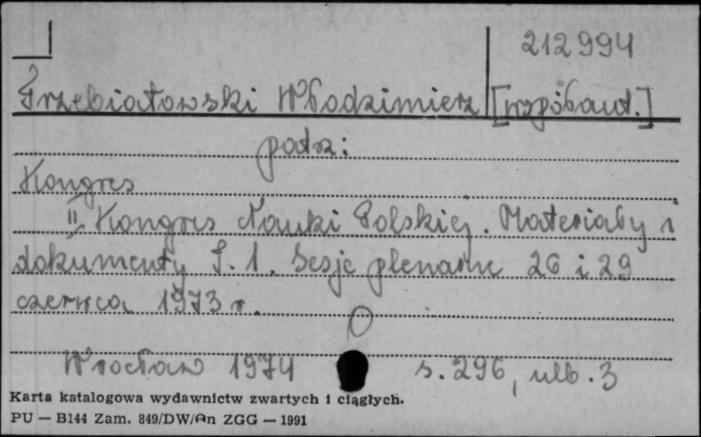 212994
Trzebiatowski Włodzimierz [współaut.]
patrz:
Kongres
II Kongres Nauki Polskiej. Materiały i
dokumenty T. 1. Sesje plenarne 26 i 29
czerwca 1973 r.
Wrocław 1974 s. 296, nlb. 3
Karta katalogowa wydawnictw zwartych i ciągłych.
PU — B144 Zam. 849/DW/An ZGG — 1991